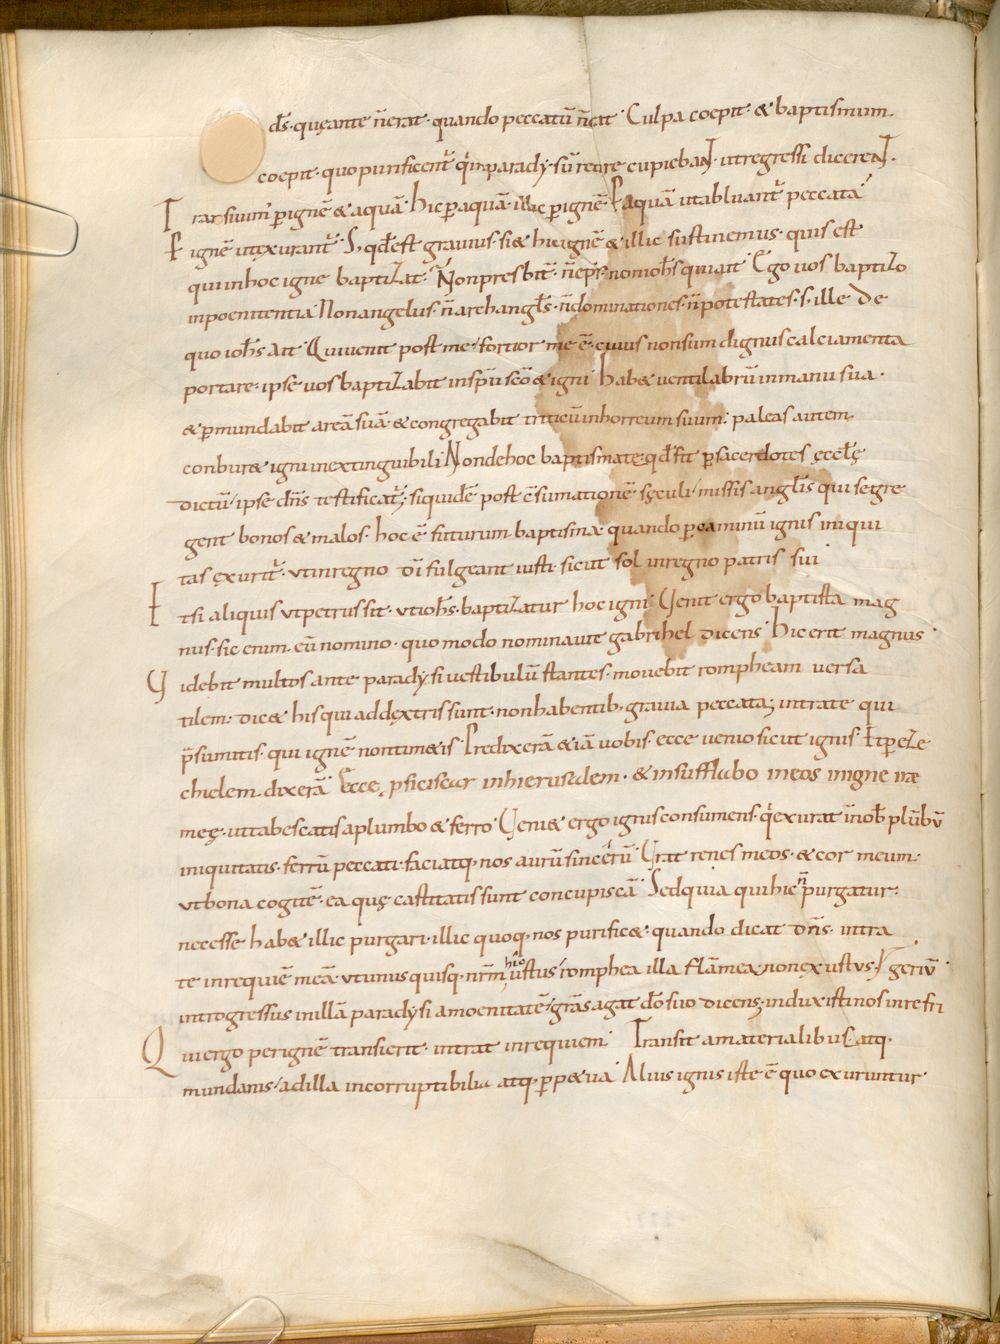 d̅s · quę ante n̅ erat · quando peccatu̅ n̅ eat · Culpa coepit · & baptismum
coepit · quo purificent᷑ qi in parady · su̅ redire cupiebaNT · ut regressi dicereNT ·
Transiuim᷑ p̲ igne̅ & aqua̅ · hic p̲ aqua̅ · illic p̲ igne̅ · P̲ aqua̅ ut abluant᷑ peccata ·
P̲ igne̅ ut exurant᷑ · S; qd̅ est grauius · si & hic igne̅ & illic sustinemus · quis est
qui in hoc igne baptizat · Non presbit̅ · n̅ ep̅s · non ioh̅s qui ait · Ego uos baptizo
in poenitentia · Non angelus · n̅ archangl̅s · n̅ dominationes · n̅ potestates · s · ille de
quo ioh̅s ait · Qui uenit post me · fortior me e̅ · cuius non sum dignus calciamenta
portare · ipse uos baptizabit in sp̅u sc̅o & igni · hab& uentilabru̅ in manu sua ·
& p̲mundabit area̅ sua̅ · & congregabit triticu̅ in horreum suum · paleas autem
conbur& igni inextinguibili · Non de hoc baptismate · qd̅ fit p̲ sacerdotes ęccl̅ę
dictu̅ · ipse dn̅s testificat᷑; siquide̅ post c̅sumatione̅ sęculi · missis angl̅is qui segre
gent bonos & malos · hoc e̅ futurum baptisma · quando p̲ caminu̅ ignis iniqui
tas exurit᷑ · ut in regno di̅ fulgeant iusti sicut sol in regno patris sui
Etsi aliquis ut petrus sit · ut ioh̅s · baptizatur hoc igni · Uenit ergo baptista mag
nus · sic enim eu̅ nomino · quo modo nominauit gabrihel dicens · hic erit magnus ·
Uidebit multos ante paradysi uestibulu̅ stantes · mouebit rompheam uersa
tilem · dic& his qui ad dextris sunt · non habentib; grauia peccata; intrate qui
p̅sumitis · qui igne̅ non tim&is · Predixera̅ & ia̅ uobis · ecce uenio sicut ignis · Et p̲ eze
chielem dixera̅ · Ecce p̲ficiscar in hierusalem · & insufflabo in eos in igne irae
meę · ut tabescatis a plumbo & ferro · Ueni& ergo ignis consumens · qi exurat in nob̅ plu̅bu̅
iniquitatis · ferru̅ peccati · faciatq; nos auru̅ sinceru̅ · Urat renes meos · & cor meum ·
ut bona cogite̅ · ea quę castitatis sunt concupisca̅ · Sed quia qui hic n̅ purgatur ·
necesse hab& illic purgari · illic quoq; nos purific& · quando dicat dn̅s · intra
te in requie̅ mea̅ · ut unus quisq; nr̅m hic ustus romphea illa fla̅mea · non exustus ·
introgressus in illa̅ paradysi amoenitate̅ · gr̅as agat do̅ suo dicens; induxisti nos in refri geriu̅ ·
Qui ergo per igne̅ transierit · intrat in requiem · Transit a materialibus atq;
mundanis · ad illa incorruptibilia atq; p̲p&ua · Alius ignis iste e̅ quo exuruntur ·